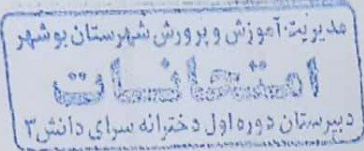 مدیریت آموزش و پرورش شهرستان بوشهر
امتحانات
دبیرستان دوره اول دخترانه سرای دانش ۳